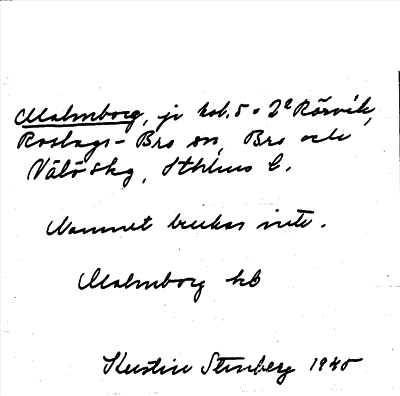 Malmborg, jr kol. 5 o 2ª Rörvik,
Roslags-Bro sn, Bro och
Vätö skg, Sthlms l.
Namnet brukas inte.
Malmborg hb
Kerstin Stenberg 1945